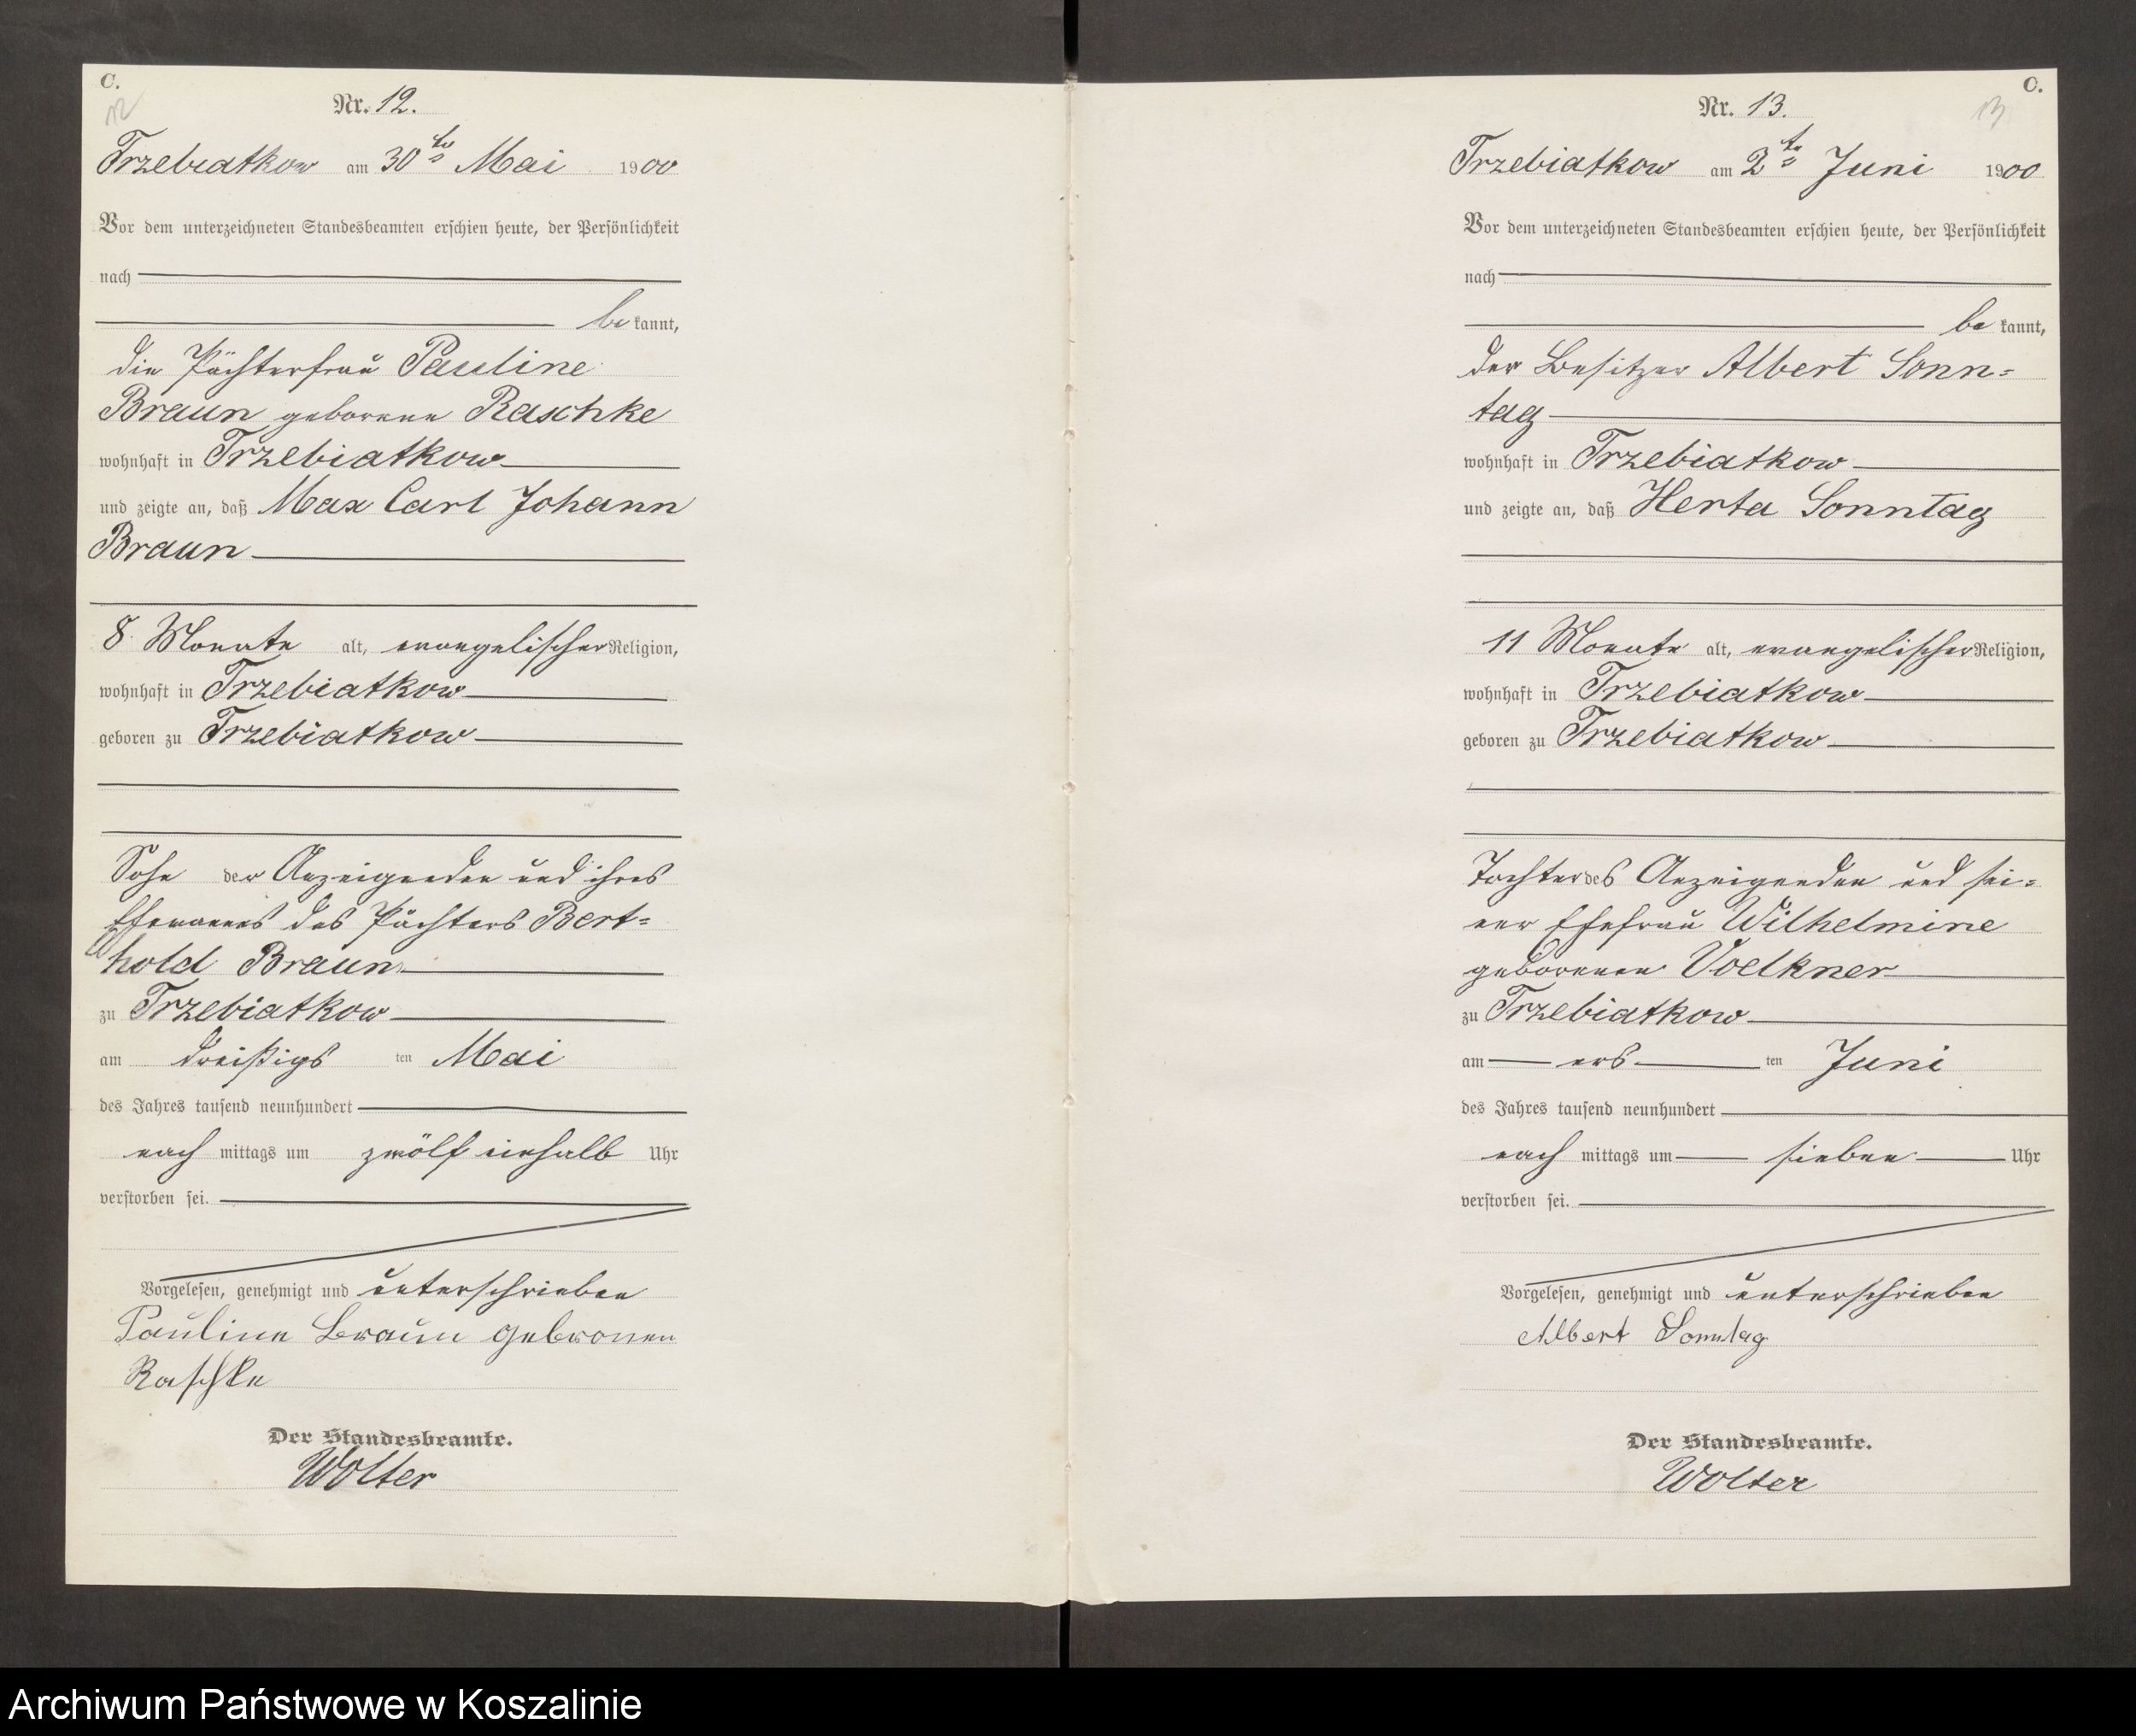 C.
12
Nr. 12.
Trzebiatkow am 30ten Mai 1900
Vor dem unterzeichneten Standesbeamten erschien heute, der Persönlichkeit
nach
bekannt,
die Pächterfrau Pauline
Braun geborene Raschke
wohnhaft in Trzebiatkow
und zeigte an, daß Max Carl Johann
Braun
8 Monate alt, evangelischer Religion,
wohnhaft in Trzebiatkow
geboren zu Trzebiatkow
Sohn der Anzeigenden und ihres
Ehemannes des Pächters Bert=
hold Braun
zu Trzebiatkow
am dreißigsten Mai
des Jahres tausend neunhundert
nachmittags um zwölf einhalb Uhr
verstorben sei.
Vorgelesen, genehmigt und unterschrieben
Pauline Braun gebronen
Raschke
Der Standesbeamte.
Wolter
C.
13
Nr. 13.
Trzebiatkow am 2ten Juni 1900
Vor dem unterzeichneten Standesbeamten erschien heute, der Persönlichkeit
nach
bekannt,
der Besitzer Albert Sonn=
tag
wohnhaft in Trzebiatkow
und zeigte an, daß Herta Sonntag
11 Monate alt, evangelischer Religion,
wohnhaft in Trzebiatkow
geboren zu Trzebiatkow
Tochter des Anzeigenden und sei=
ner Ehefrau Wilhelmine
geborenen Voelkner
zu Trzebiatkow
am ersten Juni
des Jahres tausend neunhundert
nachmittags um sieben Uhr
verstorben sei.
Vorgelesen, genehmigt und unterschrieben
Albert Sonntag
Der Standesbeamte.
Wolter
Archiwum Państwowe w Koszalinie